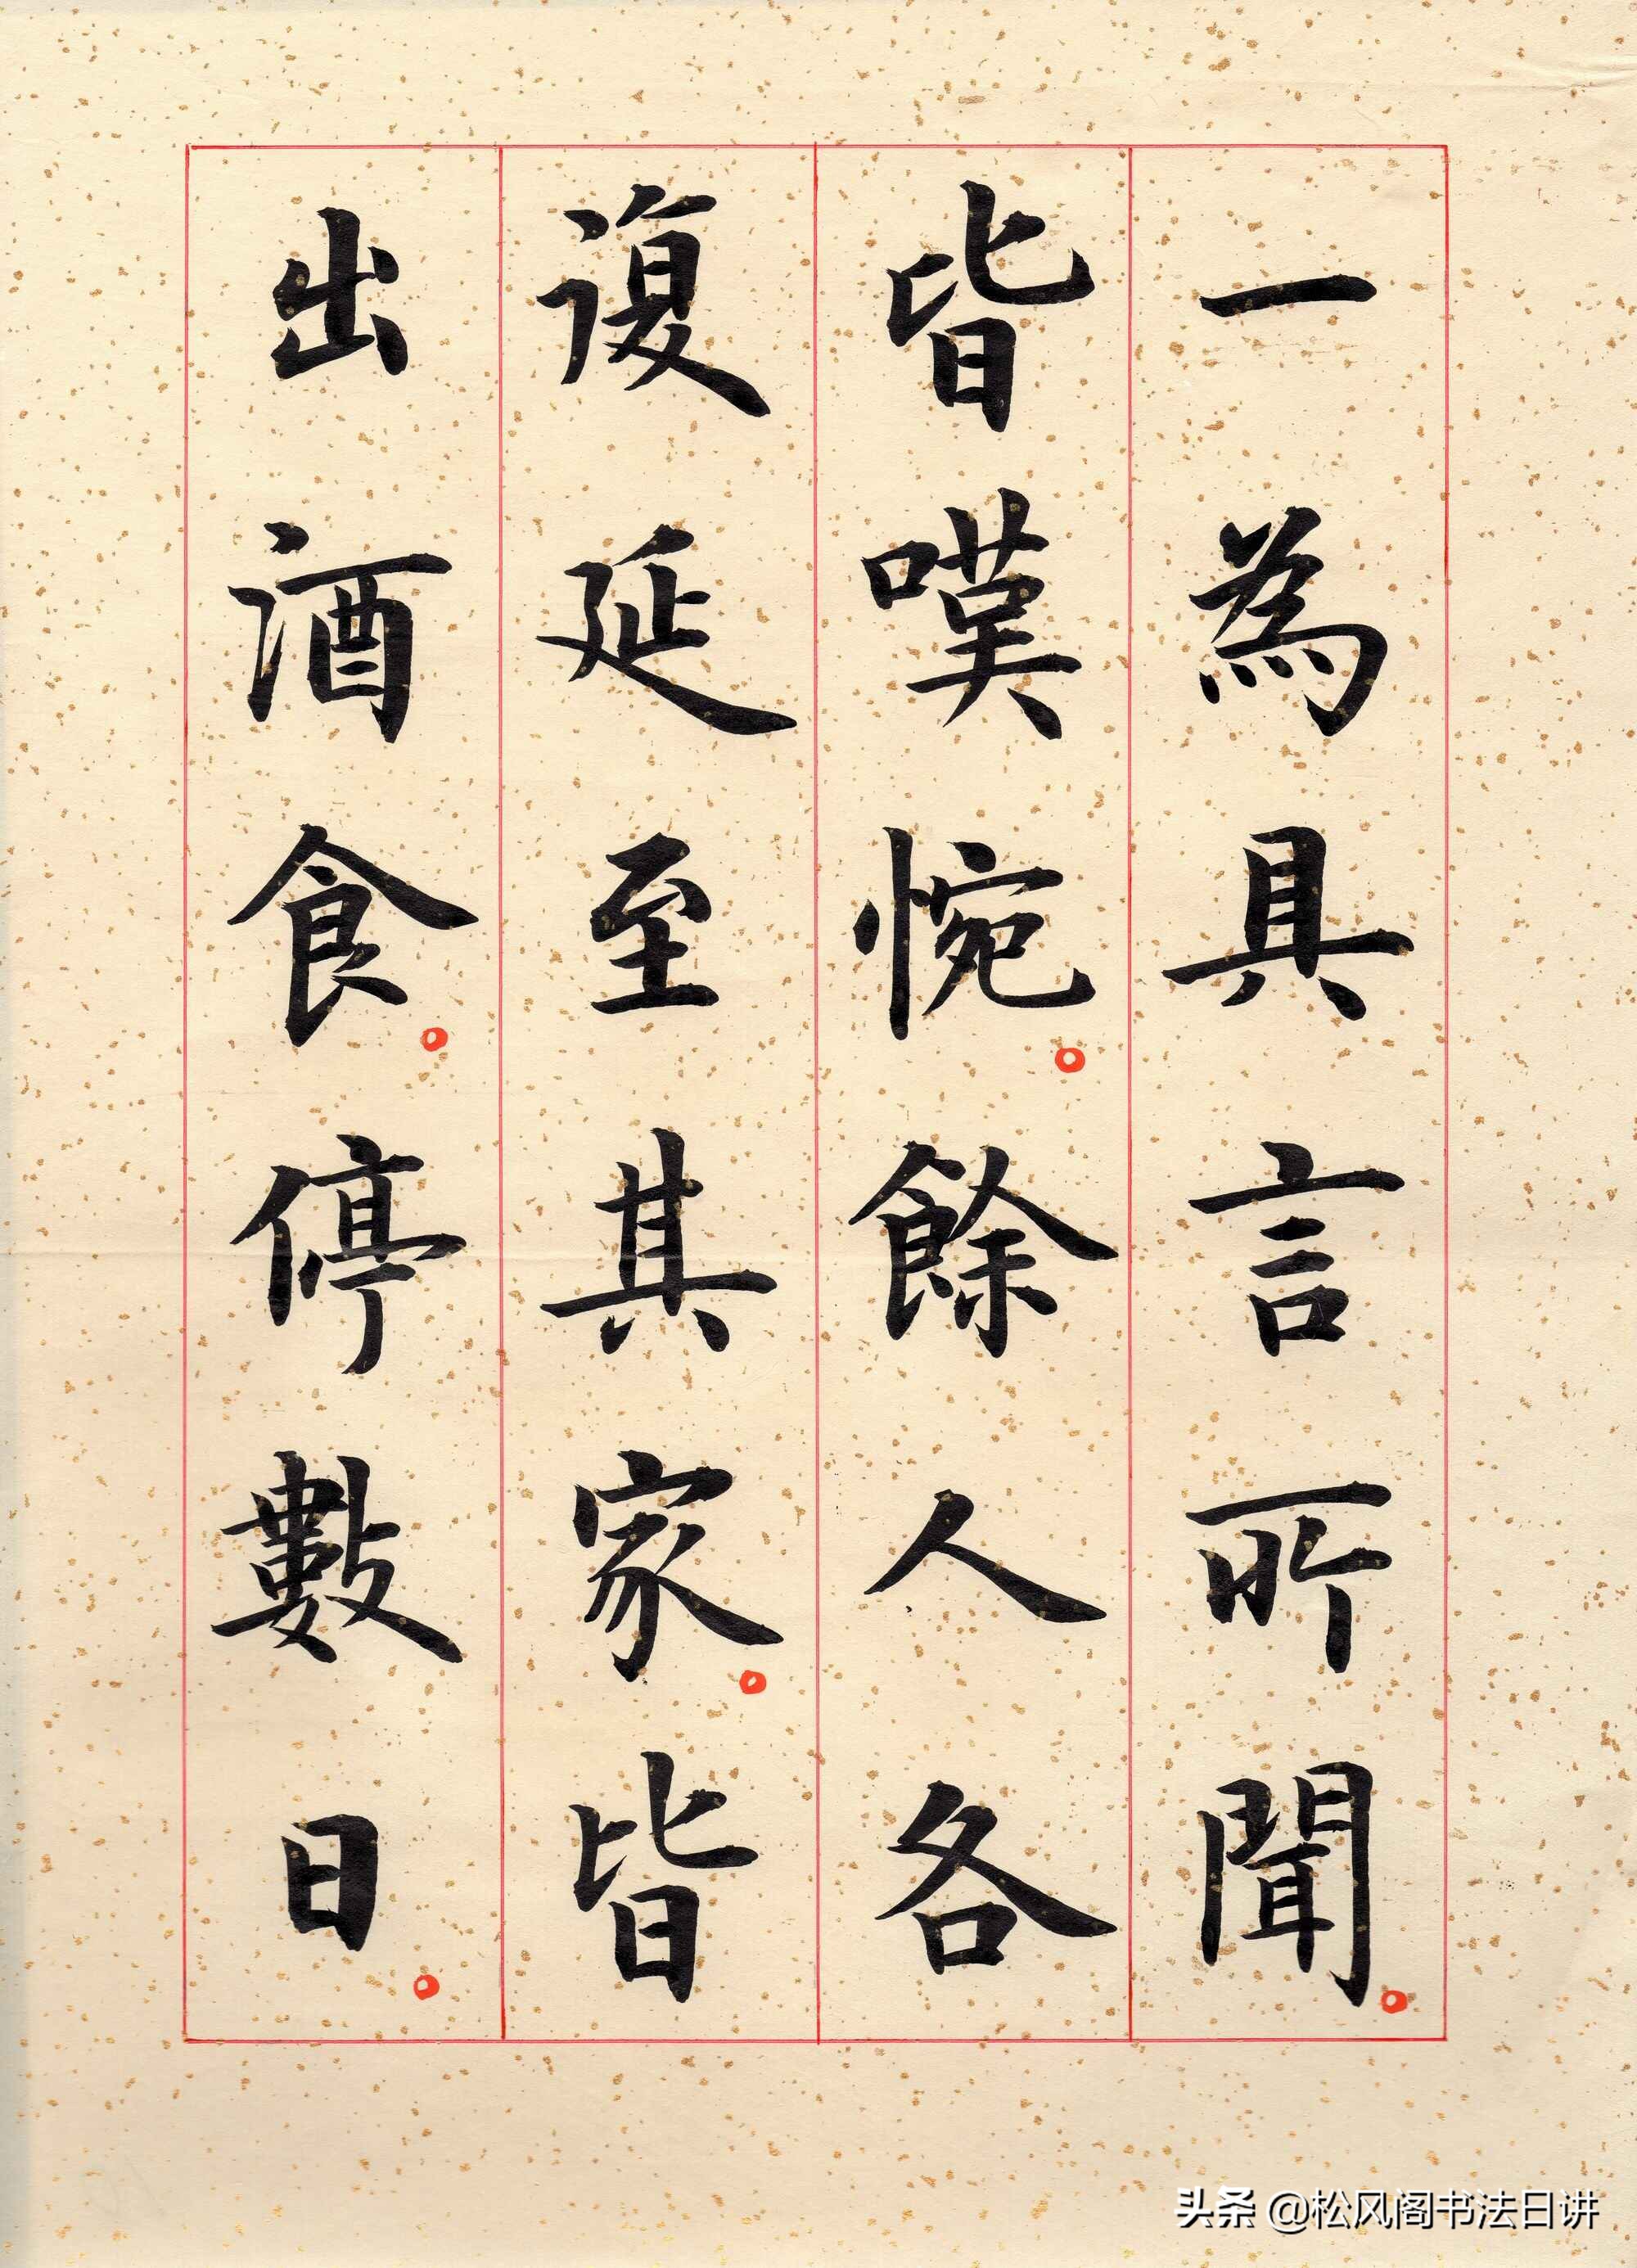 一為具言所聞
皆嘆惋餘人各
復延至其家皆
出酒食停數日
头条 @松风阁书法日讲